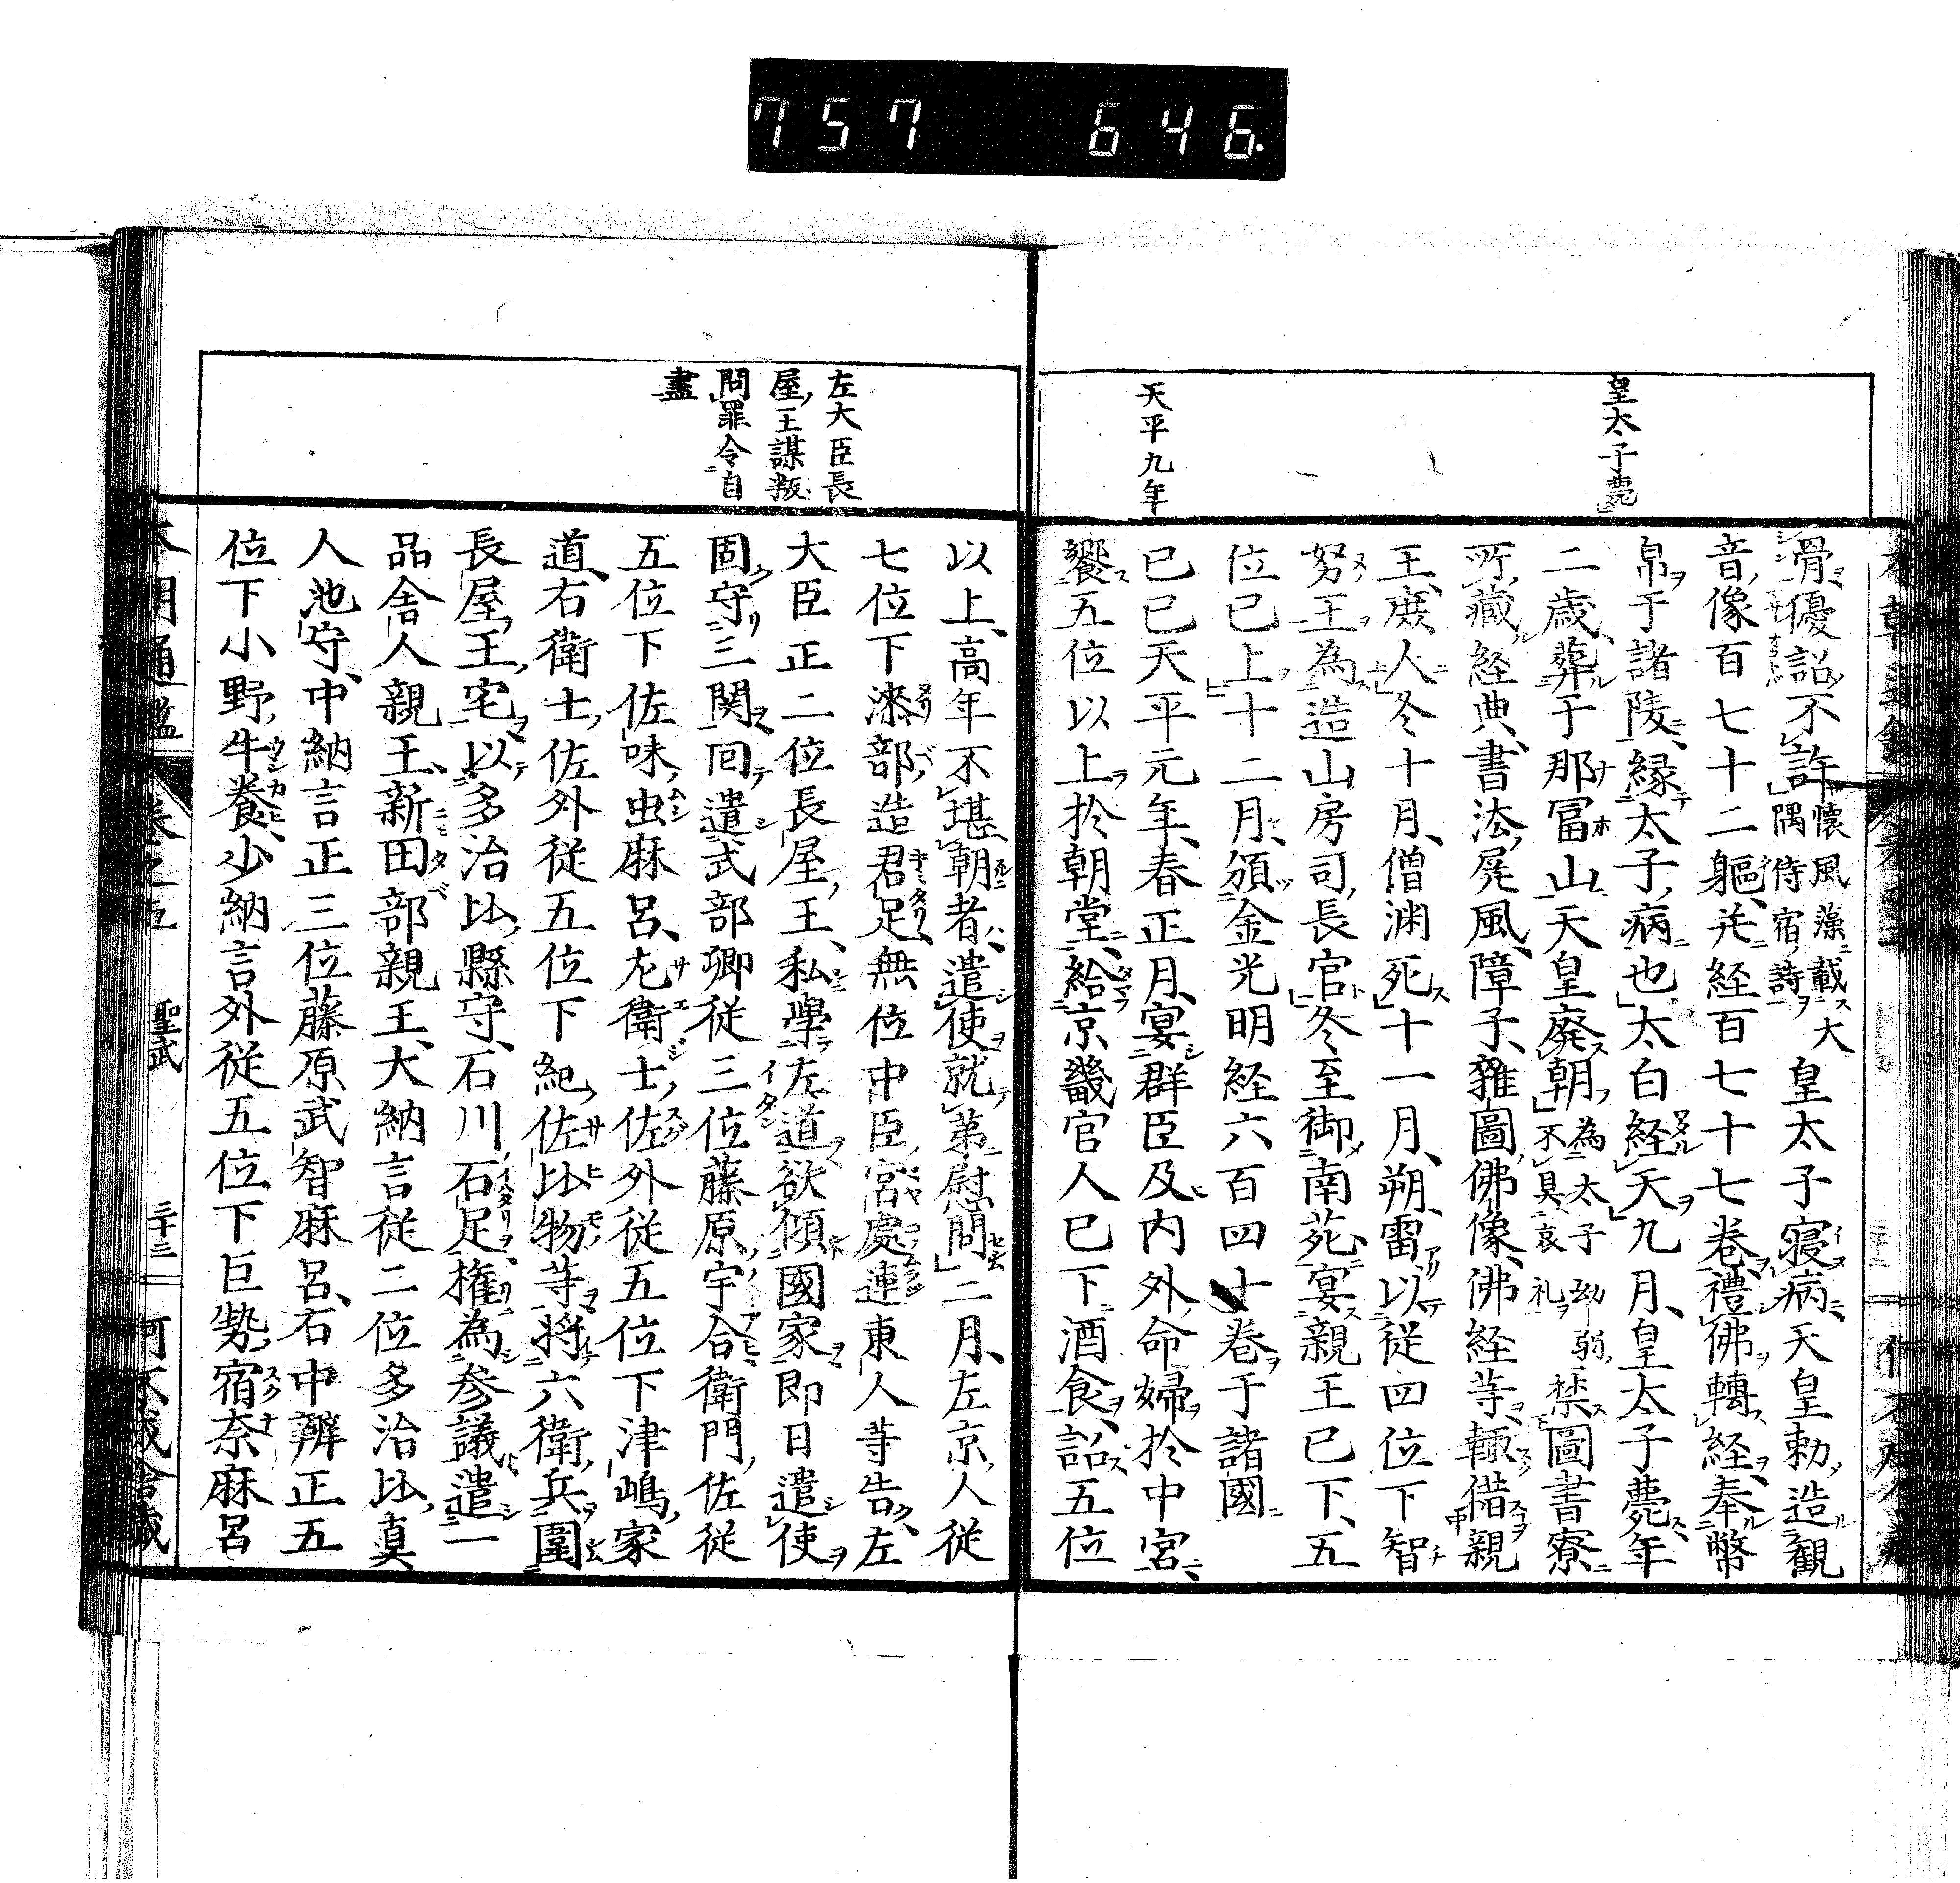 757 646.
皇太子薨
天平九年
骨優詔不許懐風藻載大隅侍宿詩皇太子寝病天皇勅造観
音像百七十二躯并経百七十七巻禮佛轉経奉幣
帛于諸陵縁太子病也太白経天九月皇太子薨年
二歳葬于那冨山天皇廃朝為太子幼弱不具哀礼禁圖書寮
所藏経典書法屏風障子雜圖佛像佛経等輙借親
王庶人冬十月僧渕死十一月朔雷以従四位下智
努王為造山房司長官冬至御南苑宴親王已下五
位已上十二月頒金光明経六百四十巻于諸國
己巳天平元年春正月宴群臣及内外命婦於中宮
饗五位以上於朝堂給京畿官人已下酒食詔五位
左大臣長
屋王謀叛
問罪令自
盡
以上高年不堪朝者遣使就第慰問二月左京人従
七位下漆部造君足無位中臣宮處連東人等告左
大臣正二位長屋王私學左道欲傾國家即日遣使
固守三関囘遣式部卿従三位藤原宇合衛門佐従
五位下佐味虫麻呂左衛士佐外従五位下津嶋家
道右衛士佐外従五位下紀佐比物等将六衛兵圍
長屋王宅以多治比縣守石川石足権為参議遣一
品舎人親王新田部親王大納言従二位多治比真
人池守中納言正三位藤原武智麻呂右中辨正五
位下小野牛養少納言外従五位下巨勢宿奈麻呂
聖武
三十三